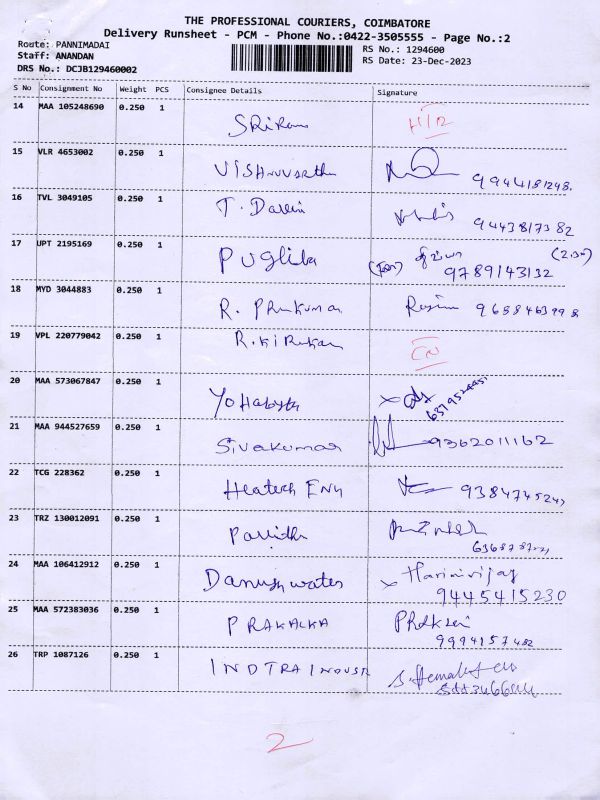 THE PROFESSIONAL COURIERS, COIMBATORE
Delivery Runsheet - PCM - Phone No.:0422-3505555 - Page No.:2
Route: PANNIMADAI
RS No.: 1294600
Staff: ANANDAN
RS Date: 23-Dec-2023
DRS No.: DCJB129460002
S No Consignment No Weight PCS Consignee Details Signature
14 MAA 105248690 0.250 1
15 VLR 4653002 0.250 1 9944181248.
16 TVL 3049105 0.250 1 9443817382
17 UPT 2195169 0.250 1 9789143132
18 MYD 3044883 0.250 1 R.
19 VPL 220779042 0.250 1 R. KiRukan
20 MAA 573067847 0.250 1
21 MAA 944527659 0.250 1 Sivakumar 9362011162
22 TCG 228362 0.250 1 Heatech Eng
23 TRZ 130012091 0.250 1
24 MAA 106412912 0.250 1 Danush water Harinivijay
9445415230
25 MAA 572383036 0.250 1 PRAKALKA
26 TRP 1087126 0.250 1 INDTRA INDUSTR
2